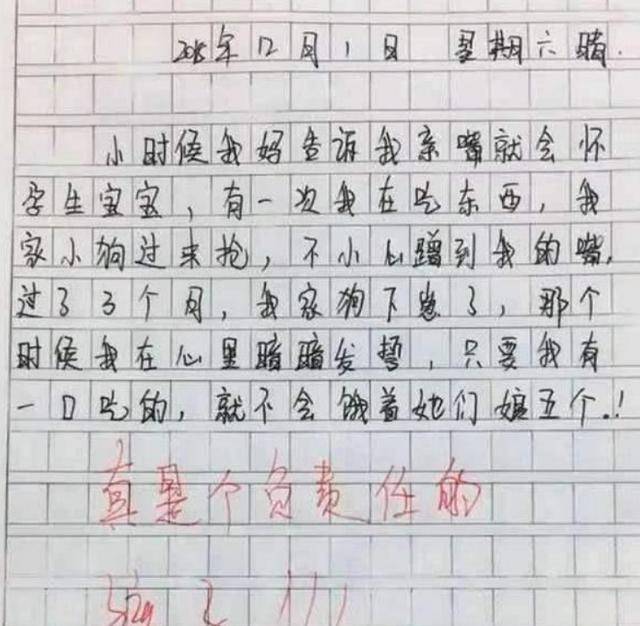 2018年12月1日 星期六晴.
小时候我妈告诉我亲嘴就会怀
孕生宝宝，有一次我在吃东西，我
家小狗过来抢，不小心蹭到我的嘴，
过了3个月，我家狗下崽了，那个
时候我在心里暗暗发誓，只要我有
一口吃的，就不会饿着她们娘五个.！
真是个负责任的